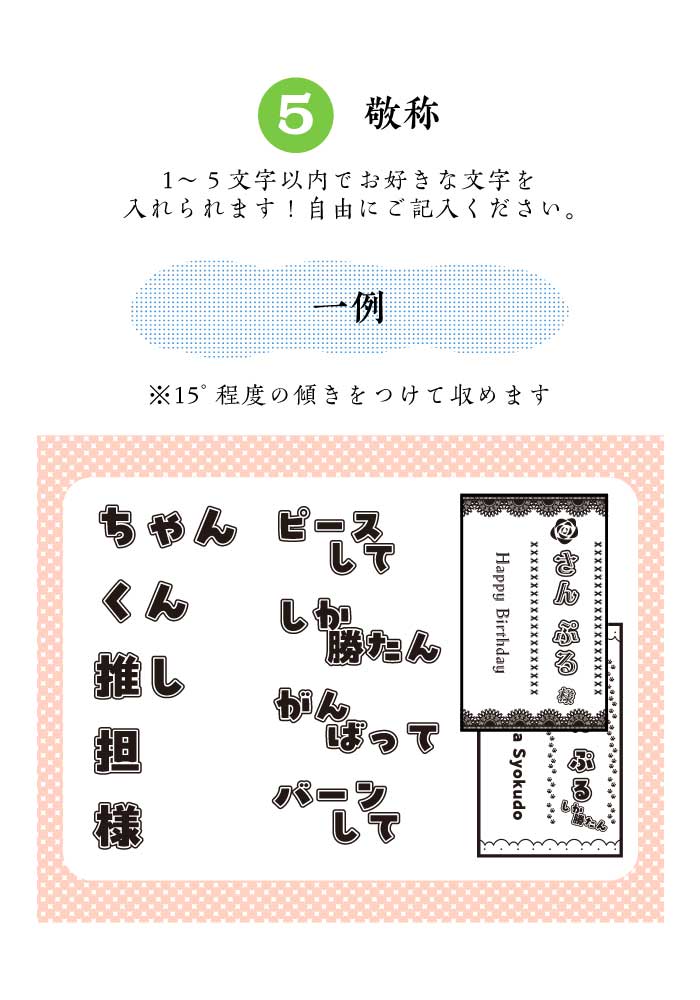 5 敬称
1～5文字以内でお好きな文字を
入れられます！自由にご記入ください。
一例
※15°程度の傾きをつけて収めます
ちゃん
くん
推し
担
様
ピース
して
しか
勝たん
がん
ばって
バーン
して
xxxxxxxxxxxxxxxxxx
さんぷる 様
xxxxxxxxxxxxxxxxxx
Happy Birthday
ぷる
しか
勝たん
a Syokudo